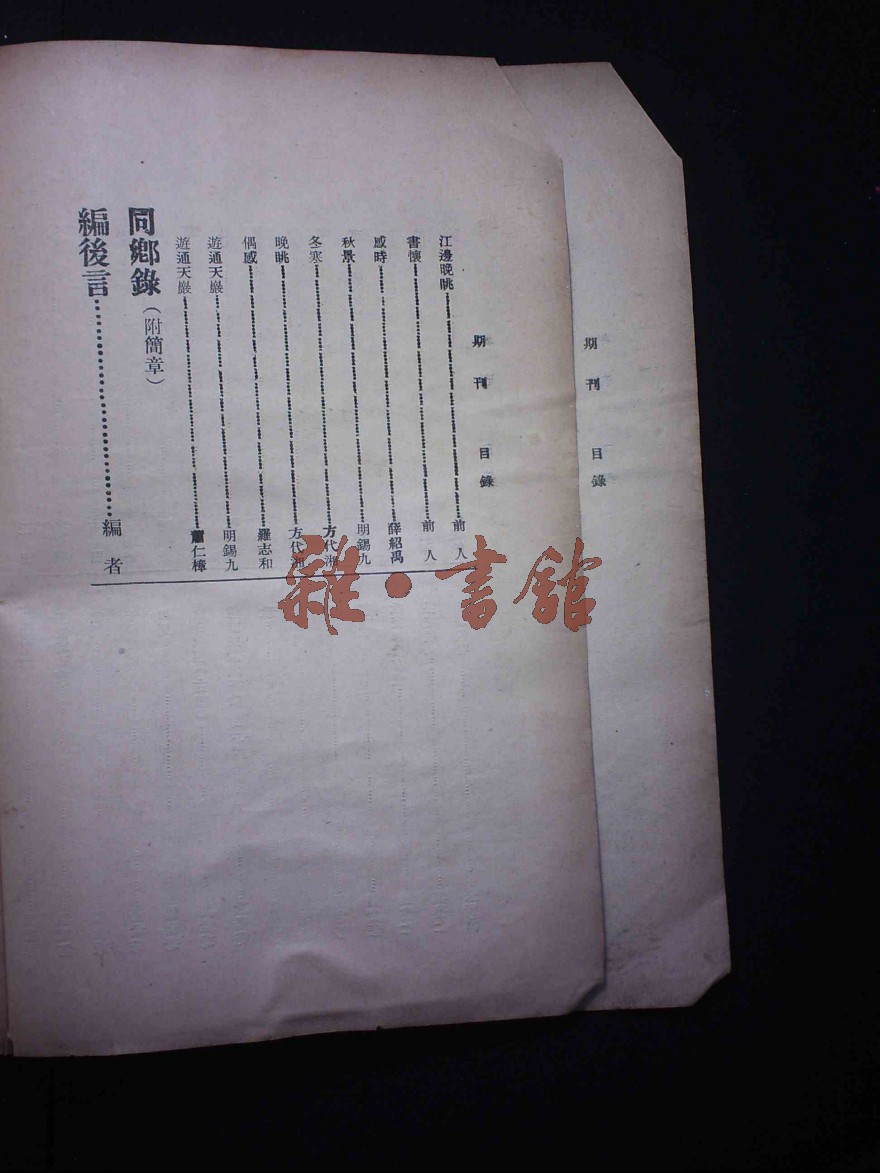 期刊目錄
期刊目錄
江邊晚眺 前人
書懷 前人
感時 薛紹禹
秋景 明錫九
冬寒 方代湘
晚眺 方代湘
偶感 羅志和
遊通天巖 明錫九
遊通天巖 蕭仁樟
同鄉錄（附簡章）
編後言 編者
雜·書館